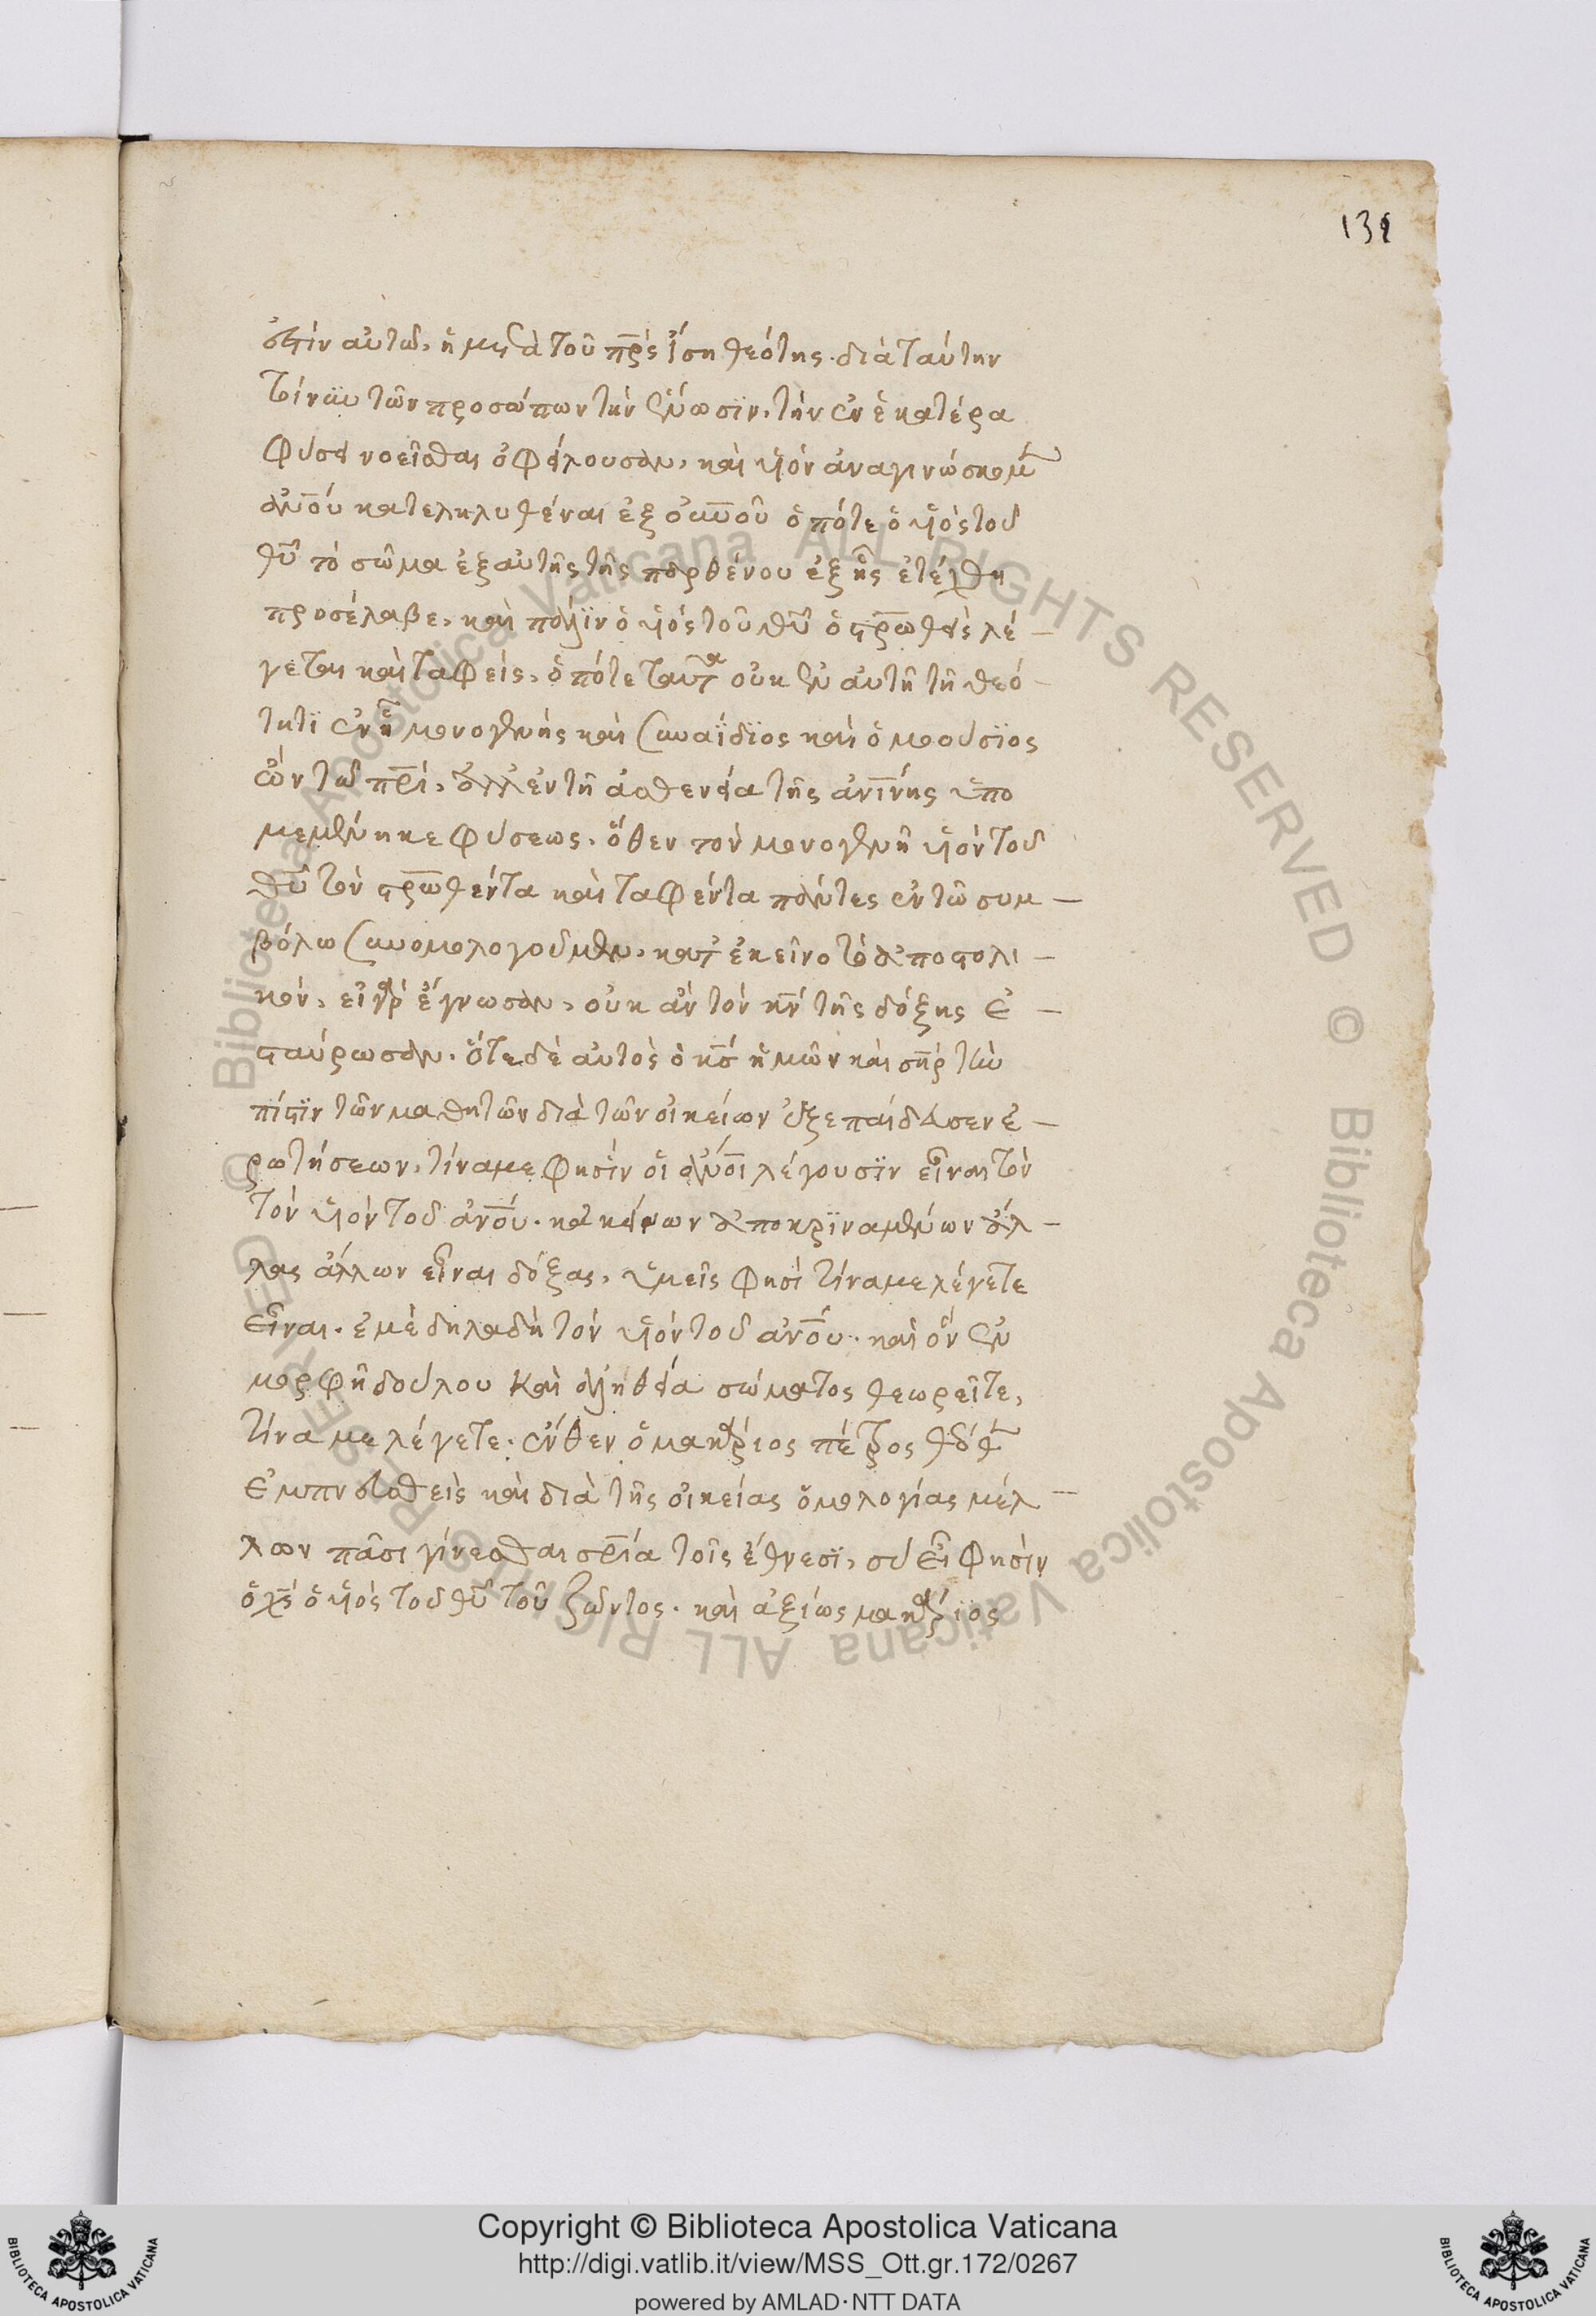 131
ἐστὶν αὐτῶ, ἡ μετὰ τοῦ πρς ἴση θεότης. διὰ ταύτην
τοίνυν τῶν προσώπων τὴν ἕνωσϊν, τὴν ἐν ἑκατέρα
φύσει νοεῖσθαι ὀφείλουσαν, καὶ υἱὸν ἀναγινώσκομεν
ἀνου κατεληλυθέναι ἐξ οὐνοῦ ὁπότε ὁ υἱὸς τοῦ
θυ τὸ σῶμα ἐξ αὐτῆς τῆς παρθένου ἐξ ἧς ἐτέχθη
προσέλαβε, καὶ πάλϊν ὁ υἱὸς τοῦ θυ ὁ στρωθεὶς λέ-
γεται καὶ ταφείς, ὁπότε ταῦτα οὐκ ἐν αὐτῆ τῆ θεό-
τητϊ ἐν ἧ μονογενής καὶ συναΐδϊος καὶ ὁμοούσϊος
ὢν τῶ πρι, ἀλλ' ἐν τῆ ἀσθενεία τῆς ἀνινης ὑπο
μεμένηκε φύσεως. ὅθεν τὸν μονογενῆ υἱὸν τοῦ
θυ τὸν στρωθέντα καὶ ταφέντα πάντες ἐν τῶ συμ-
βόλω συνομολογοῦμεν, κατ' ἐκεῖνο τὸ ἀποστολι-
κόν, εἰ γὰρ ἔγνωσαν, οὐκ ἂν τὸν κν τῆς δόξης ἐ-
σταύρωσαν. ὅτε δὲ αὐτὸς ὁ κς ἡμῶν καὶ σηρ τὴν
πίστϊν τῶν μαθητῶν διὰ τῶν οἰκείων ἐξεπαίδευσεν ἐ-
ρωτήσεων, τίνα με φησὶν οἱ ἀνοι λέγουσϊν εἶναι τὸν
τὸν υἱὸν τοῦ ἀνου. κἀκείνων ἀποκρϊναμένων ἄλ-
λας ἄλλων εἶναι δόξας, ὑμεῖς φησὶ τίνα με λέγετε
εἶναι. ἐμὲ δηλαδὴ τὸν υἱὸν τοῦ ἀνου. καὶ ὃν ἐν
μορφῆ δούλου καὶ ἀληθεία σώματος θεωρεῖτε,
τίνα με λέγετε. ἔνθεν ὁ μακάριος πέτρος θεόθεν
ἐμπνευσθεὶς καὶ διὰ τῆς οἰκείας ὁμολογίας μέλ-
λων πᾶσι γίνεσθαι σρια τοῖς ἔθνεσϊ, σὺ εἶ φησὶν
ὁ χς ὁ υἱὸς τοῦ θυ τοῦ ζῶντος. καὶ ἀξίως μακάρϊος
Copyright © Biblioteca Apostolica Vaticana
http://digi.vatlib.it/view/MSS_Ott.gr.172/0267
powered by AMLAD·NTT DATA
BIBLIOTECA APOSTOLICA VATICANA
BIBLIOTECA APOSTOLICA VATICANA
© Biblioteca Apostolica Vaticana ALL RIGHTS RESERVED © Biblioteca Apostolica Vaticana ALL RIGHTS RESERVED